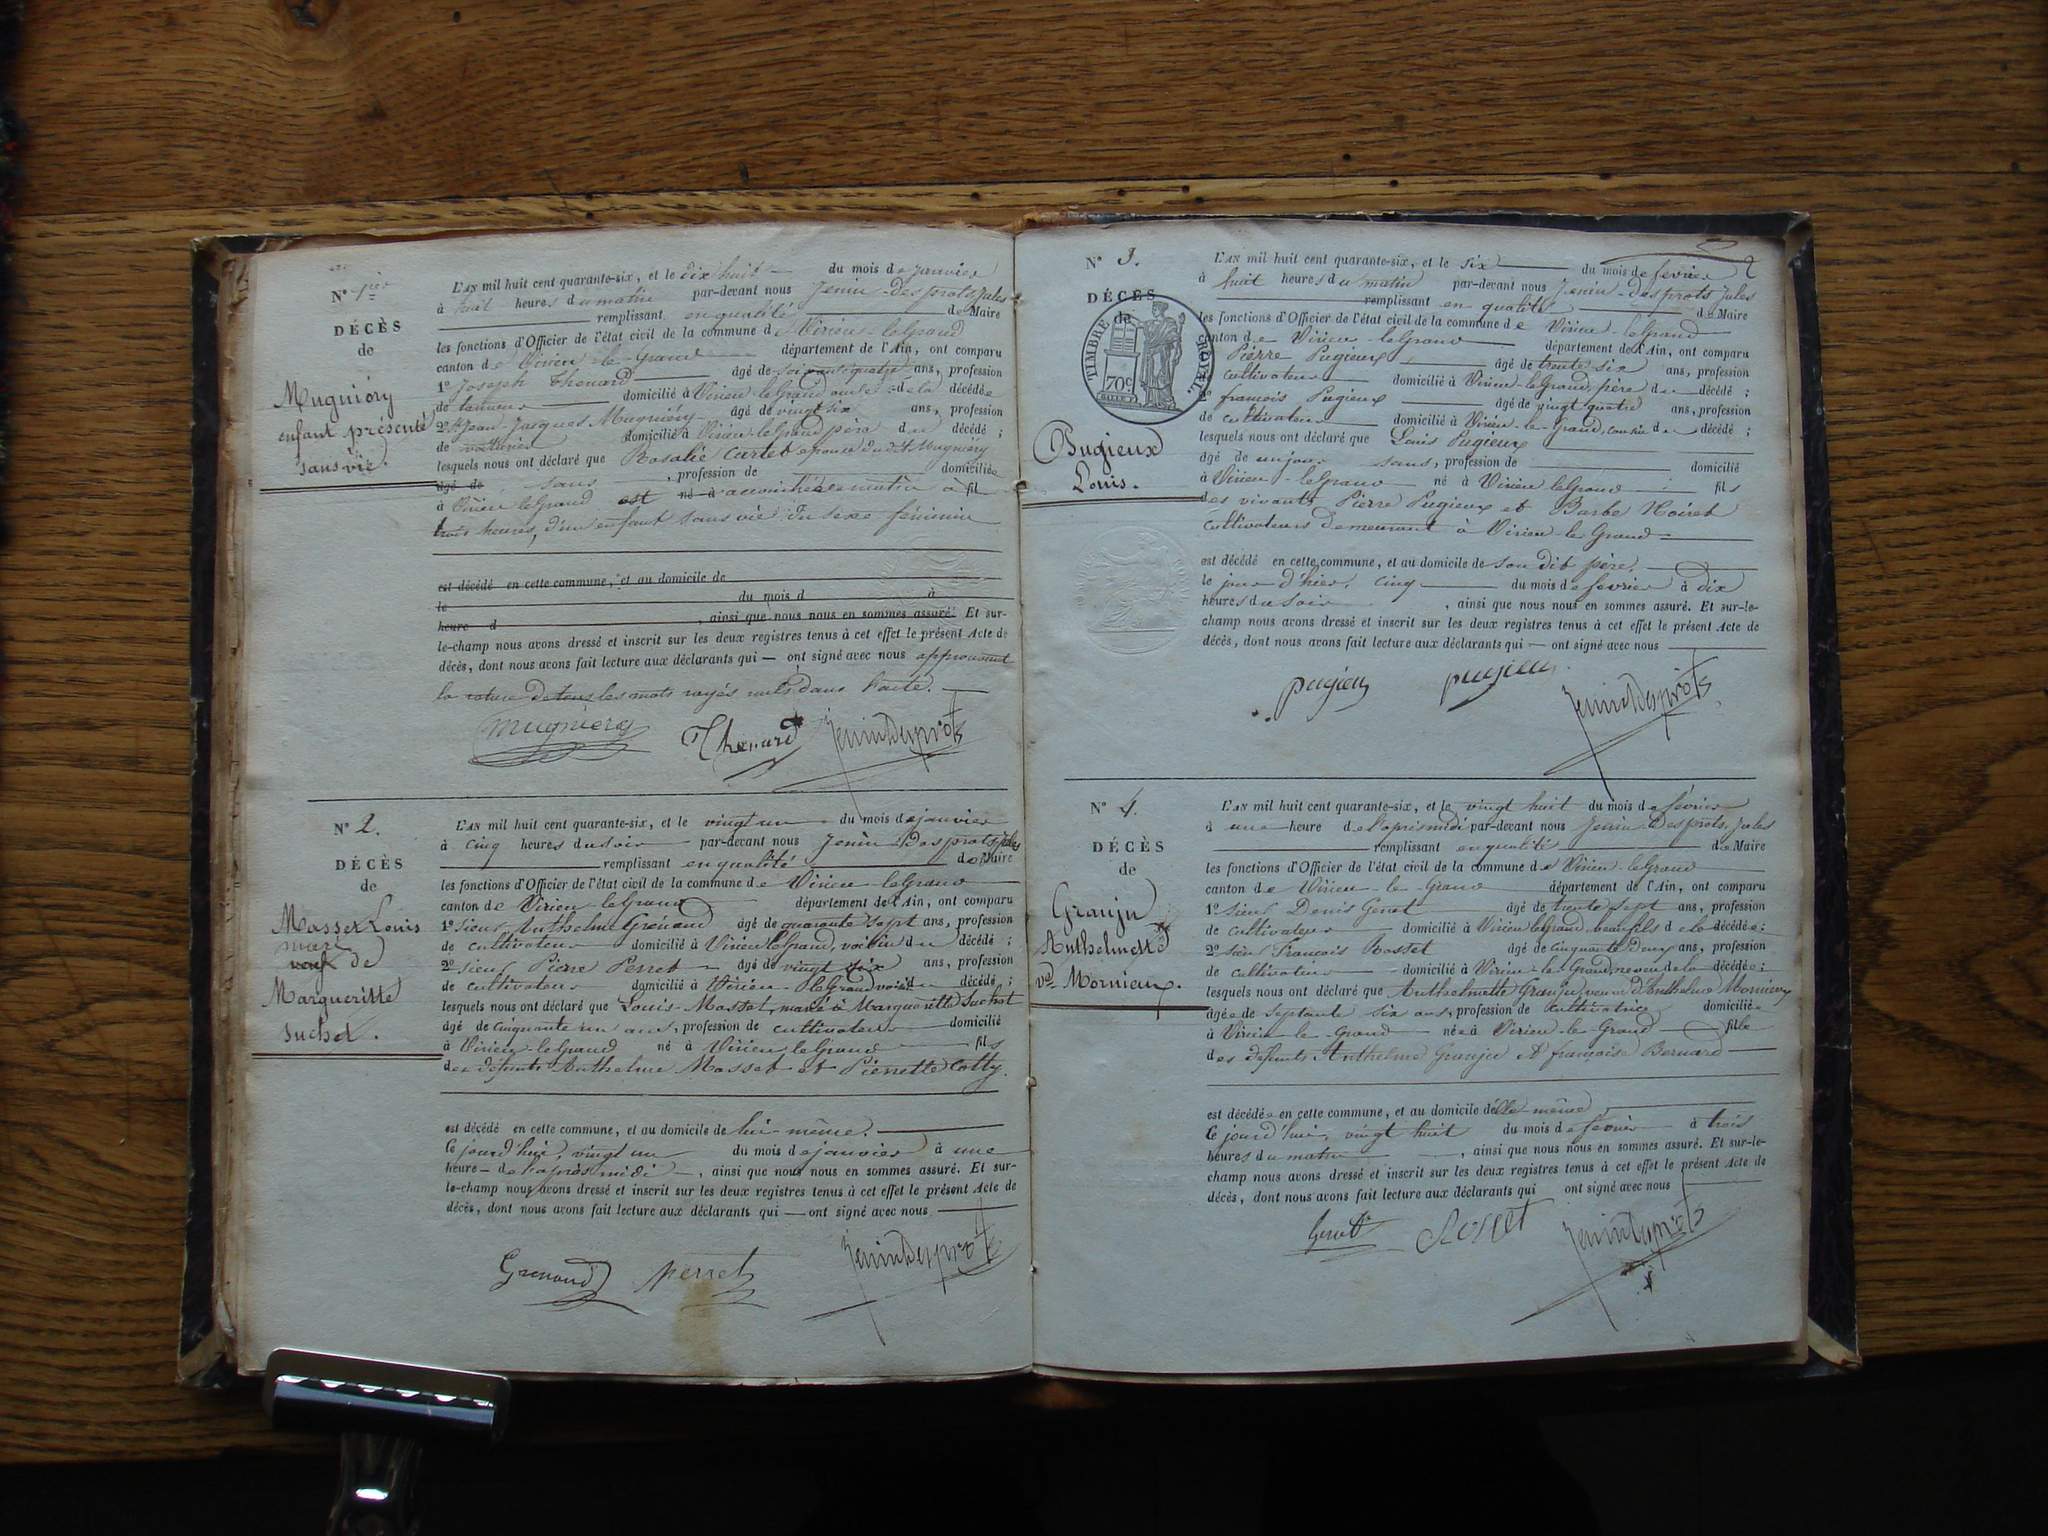 N° 1ier
DÉCÈS
de
Mugniéry
enfant présenté
sans vie.
L'AN mil huit cent quarante-six, et le dix huit du mois de janvier
à huit heures du matin par-devant nous Jenin-Desprots Jules
remplissant en qualité de Maire
les fonctions d'Officier de l'état civil de la commune de Virieu-le-Grand
canton de Virieu-le-Grand département de l'Ain, ont comparu
1° Joseph Thenard âgé de soixante quatre ans, profession
de tanneur domicilié à Virieu le Grand de la décédée
2° Jean-Jacques Mugniéry âgé de vingt six ans, profession
de voiturier domicilié à Virieu-le-Grand père du décédé ;
lesquels nous ont déclaré que Rosalie Cartet épouse du dit Mugniéry
âgé de sans, profession de domiciliée
à Virieu le Grand est né à accouchée ce matin à fil
trois heures, d'un enfant sans vie du sexe féminin
est décédé en cette commune, et au domicile de
le du mois d à
heure d , ainsi que nous nous en sommes assuré. Et sur-
le-champ nous avons dressé et inscrit sur les deux registres tenus à cet effet le présent Acte de
décès, dont nous avons fait lecture aux déclarants qui — ont signé avec nous approuvant
la rature de tous les mots rayés nuls dans l'acte.
Mugniery Thenard JeninDesprots
N° 2.
DÉCÈS
de
Masset Louis
mari
veuf de
Margueritte
Suchet.
L'AN mil huit cent quarante-six, et le vingt un du mois de janvier
à cinq heures du soir par-devant nous Jenin-Desprots Jules
remplissant en qualité de Maire
les fonctions d'Officier de l'état civil de la commune de Virieu-le Grand
canton de Virieu le Grand département de l'Ain, ont comparu
1° sieur Anthelme Grénaud âgé de quarante sept ans, profession
de cultivateur domicilié à Virieu le Grand, voisin du décédé ;
2° sieur Pierre Perret âgé de vingt six ans, profession
de cultivateur domicilié à Virieu-le Grand voisin du décédé ;
lesquels nous ont déclaré que Louis Masset, marié à Margueritte Suchet
âgé de cinquante un ans, profession de cultivateur domicilié
à Virieu-le Grand né à Virieu le Grand fils
des défunts Anthelme Masset et Pierrette Cotty.
est décédé en cette commune, et au domicile de lui-même.
le jourd'hui, vingt un du mois de janvier à une
heure de l'après midi, ainsi que nous nous en sommes assuré. Et sur-
le-champ nous avons dressé et inscrit sur les deux registres tenus à cet effet le présent Acte de
décès, dont nous avons fait lecture aux déclarants qui — ont signé avec nous
Grenaud perret JeninDesprots
2
N° 3.
DÉCÈS
de
TIMBRE ROYAL.
70c
Pugieux
Louis.
L'AN mil huit cent quarante-six, et le six du mois de fevrier
à huit heures du matin par-devant nous Jenin-Desprots Jules
remplissant en qualité de Maire
les fonctions d'Officier de l'état civil de la commune de Virieu-le Grand
canton de Virieu-le Grand département de l'Ain, ont comparu
Pierre Pugieux âgé de trente six ans, profession
cultivateur domicilié à Virieu-le Grand, père du décédé ;
2° françois Pugieux âgé de vingt quatre ans, profession
de cultivateur domicilié à Virieu-le-Grand, cousin du décédé ;
lesquels nous ont déclaré que Louis Pugieux
âgé de un jour sans, profession de domicilié
à Virieu-le Grand né à Virieu le Grand fils
des vivants Pierre Pugieux et Barbe Noiret
cultivateurs demeurant à Virieu-le Grand
est décédé en cette commune, et au domicile de son dit père.
le jour d'hier, cinq du mois de fevrier à dix
heures du soir, ainsi que nous nous en sommes assuré. Et sur-le-
champ nous avons dressé et inscrit sur les deux registres tenus à cet effet le présent Acte de
décès, dont nous avons fait lecture aux déclarants qui — ont signé avec nous
pugieu pugieu JeninDesprots
N° 4.
DÉCÈS
de
Granju
Anthelmette
ve Mornieux.
L'AN mil huit cent quarante-six, et le vingt huit du mois de fevrier
à une heure de l'après midi par-devant nous Jenin-Desprots, Jules
remplissant en qualité de Maire
les fonctions d'Officier de l'état civil de la commune de Virieu-le Grand
canton de Virieu-le-Grand département de l'Ain, ont comparu
1° sieur Denis Genet âgé de trente sept ans, profession
de cultivateur domicilié à Virieu le Grand, beau fils de la décédée ;
2° sieur François Rosset âgé de cinquante deux ans, profession
de cultivateur domicilié à Virieu-le-Grand neveu de la décédée ;
lesquels nous ont déclaré que Anthelmette Granju, veuve d'Anthelme Mornieux
âgée de septante six ans, profession de cultivatrice domiciliée
à Virieu-le-Grand née à Virieu-le-Grand fille
des défunts Anthelme Granju et françoise Bernard
est décédée en cette commune, et au domicile d'elle même,
le jourd'hui, vingt huit du mois de fevrier à trois
heures du matin, ainsi que nous nous en sommes assuré. Et sur-le-
champ nous avons dressé et inscrit sur les deux registres tenus à cet effet le présent Acte de
décès, dont nous avons fait lecture aux déclarants qui ont signé avec nous
Genet Rosset JeninDesprots